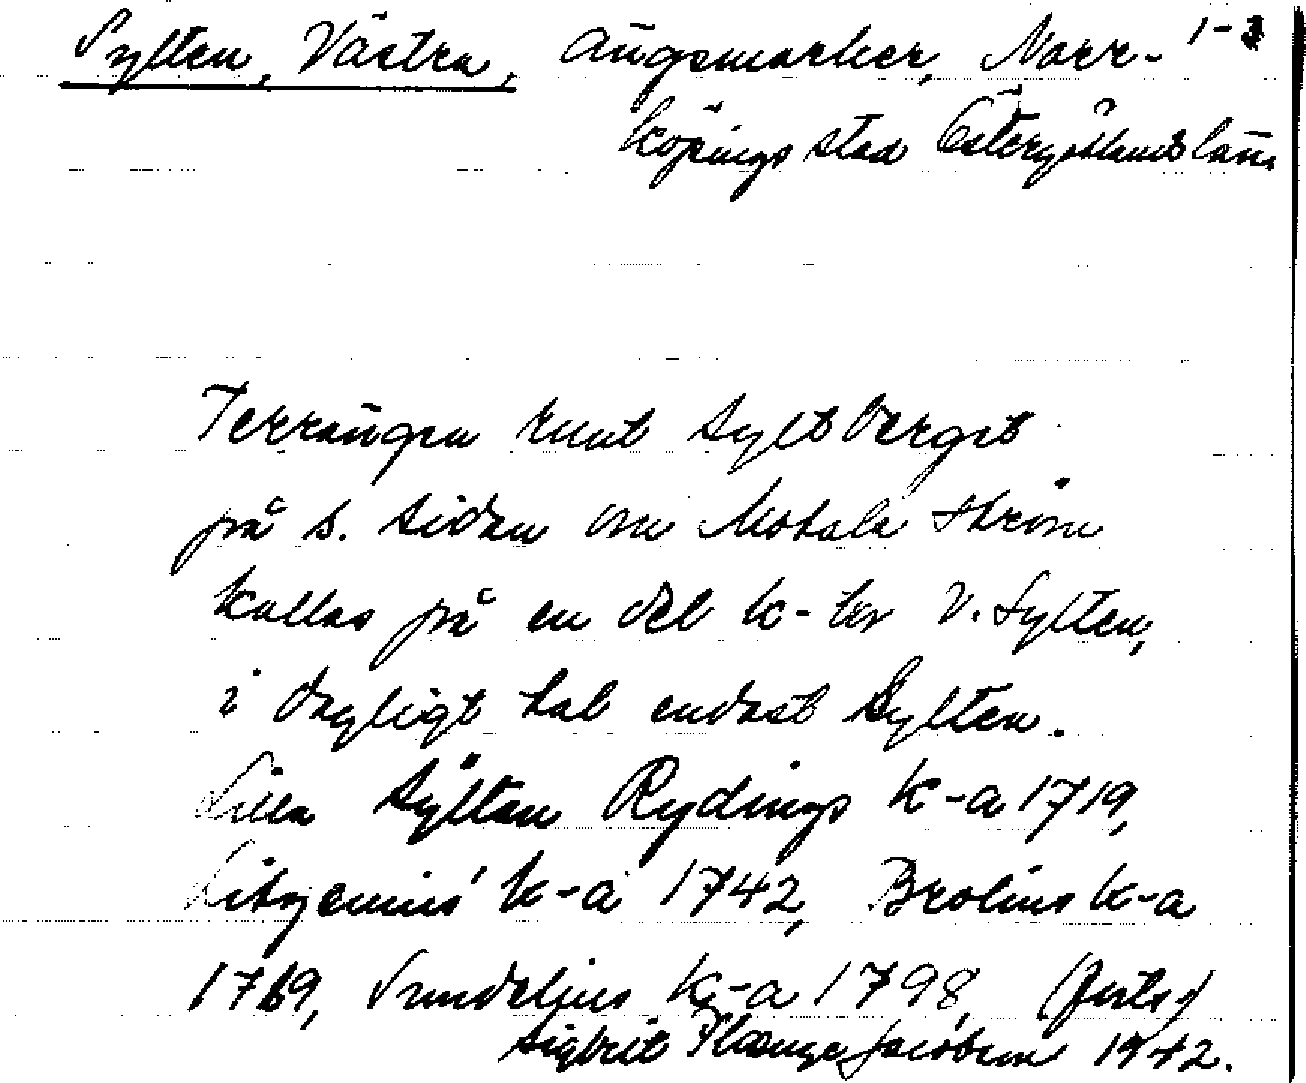 Sylten, Västra, Ängsmarker, Norr- 1-3
köpings stad Östergötlands län.
Terrängen runt Syltberget
på s. sidan om Motala ström
kallas på en del k-tor V. Sylten,
i dagligt tal endast Sylten.
Lilla Sÿltan Rydings k-a 1719,
k-a 1742, Brolins k-a
1769, Sundelius k-a 1798, (forts.)
Sigbrit Plænge Jacobson 1942.